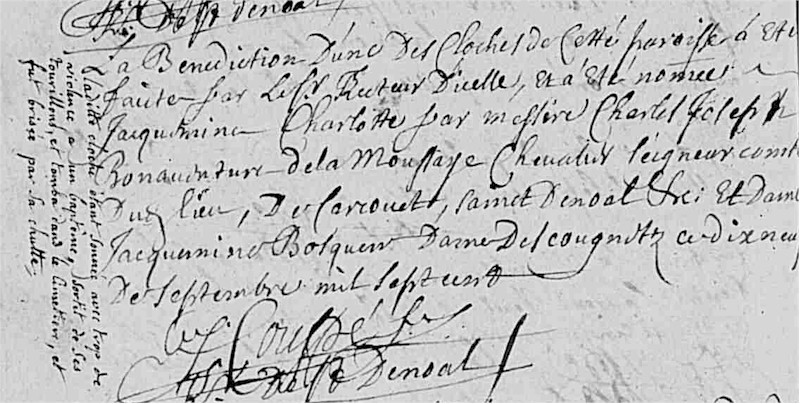 de St Denoal
La Benediction D'une Des Cloches de Cette paroisse à eté
faitte par Le Sr Recteur D'icelle, et à été nomée
Jacquemine Charlotte par messire Charles Joseph
Bonaventure de la Moussaye Chevalier Seigneur comte
Du lieu, De Carcouet, sainct Denoal &c Et Dame
Jacquemine Bosquen Dame Des cougnetz ce dix neuf
De septembre mil sept cent
St Denoal
Ladite cloche étant sonnée avec trop de
violence a un baptême, sortit de ses
tourillons, et tomba dans le cimetière, et
fut brisée par sa chutte,